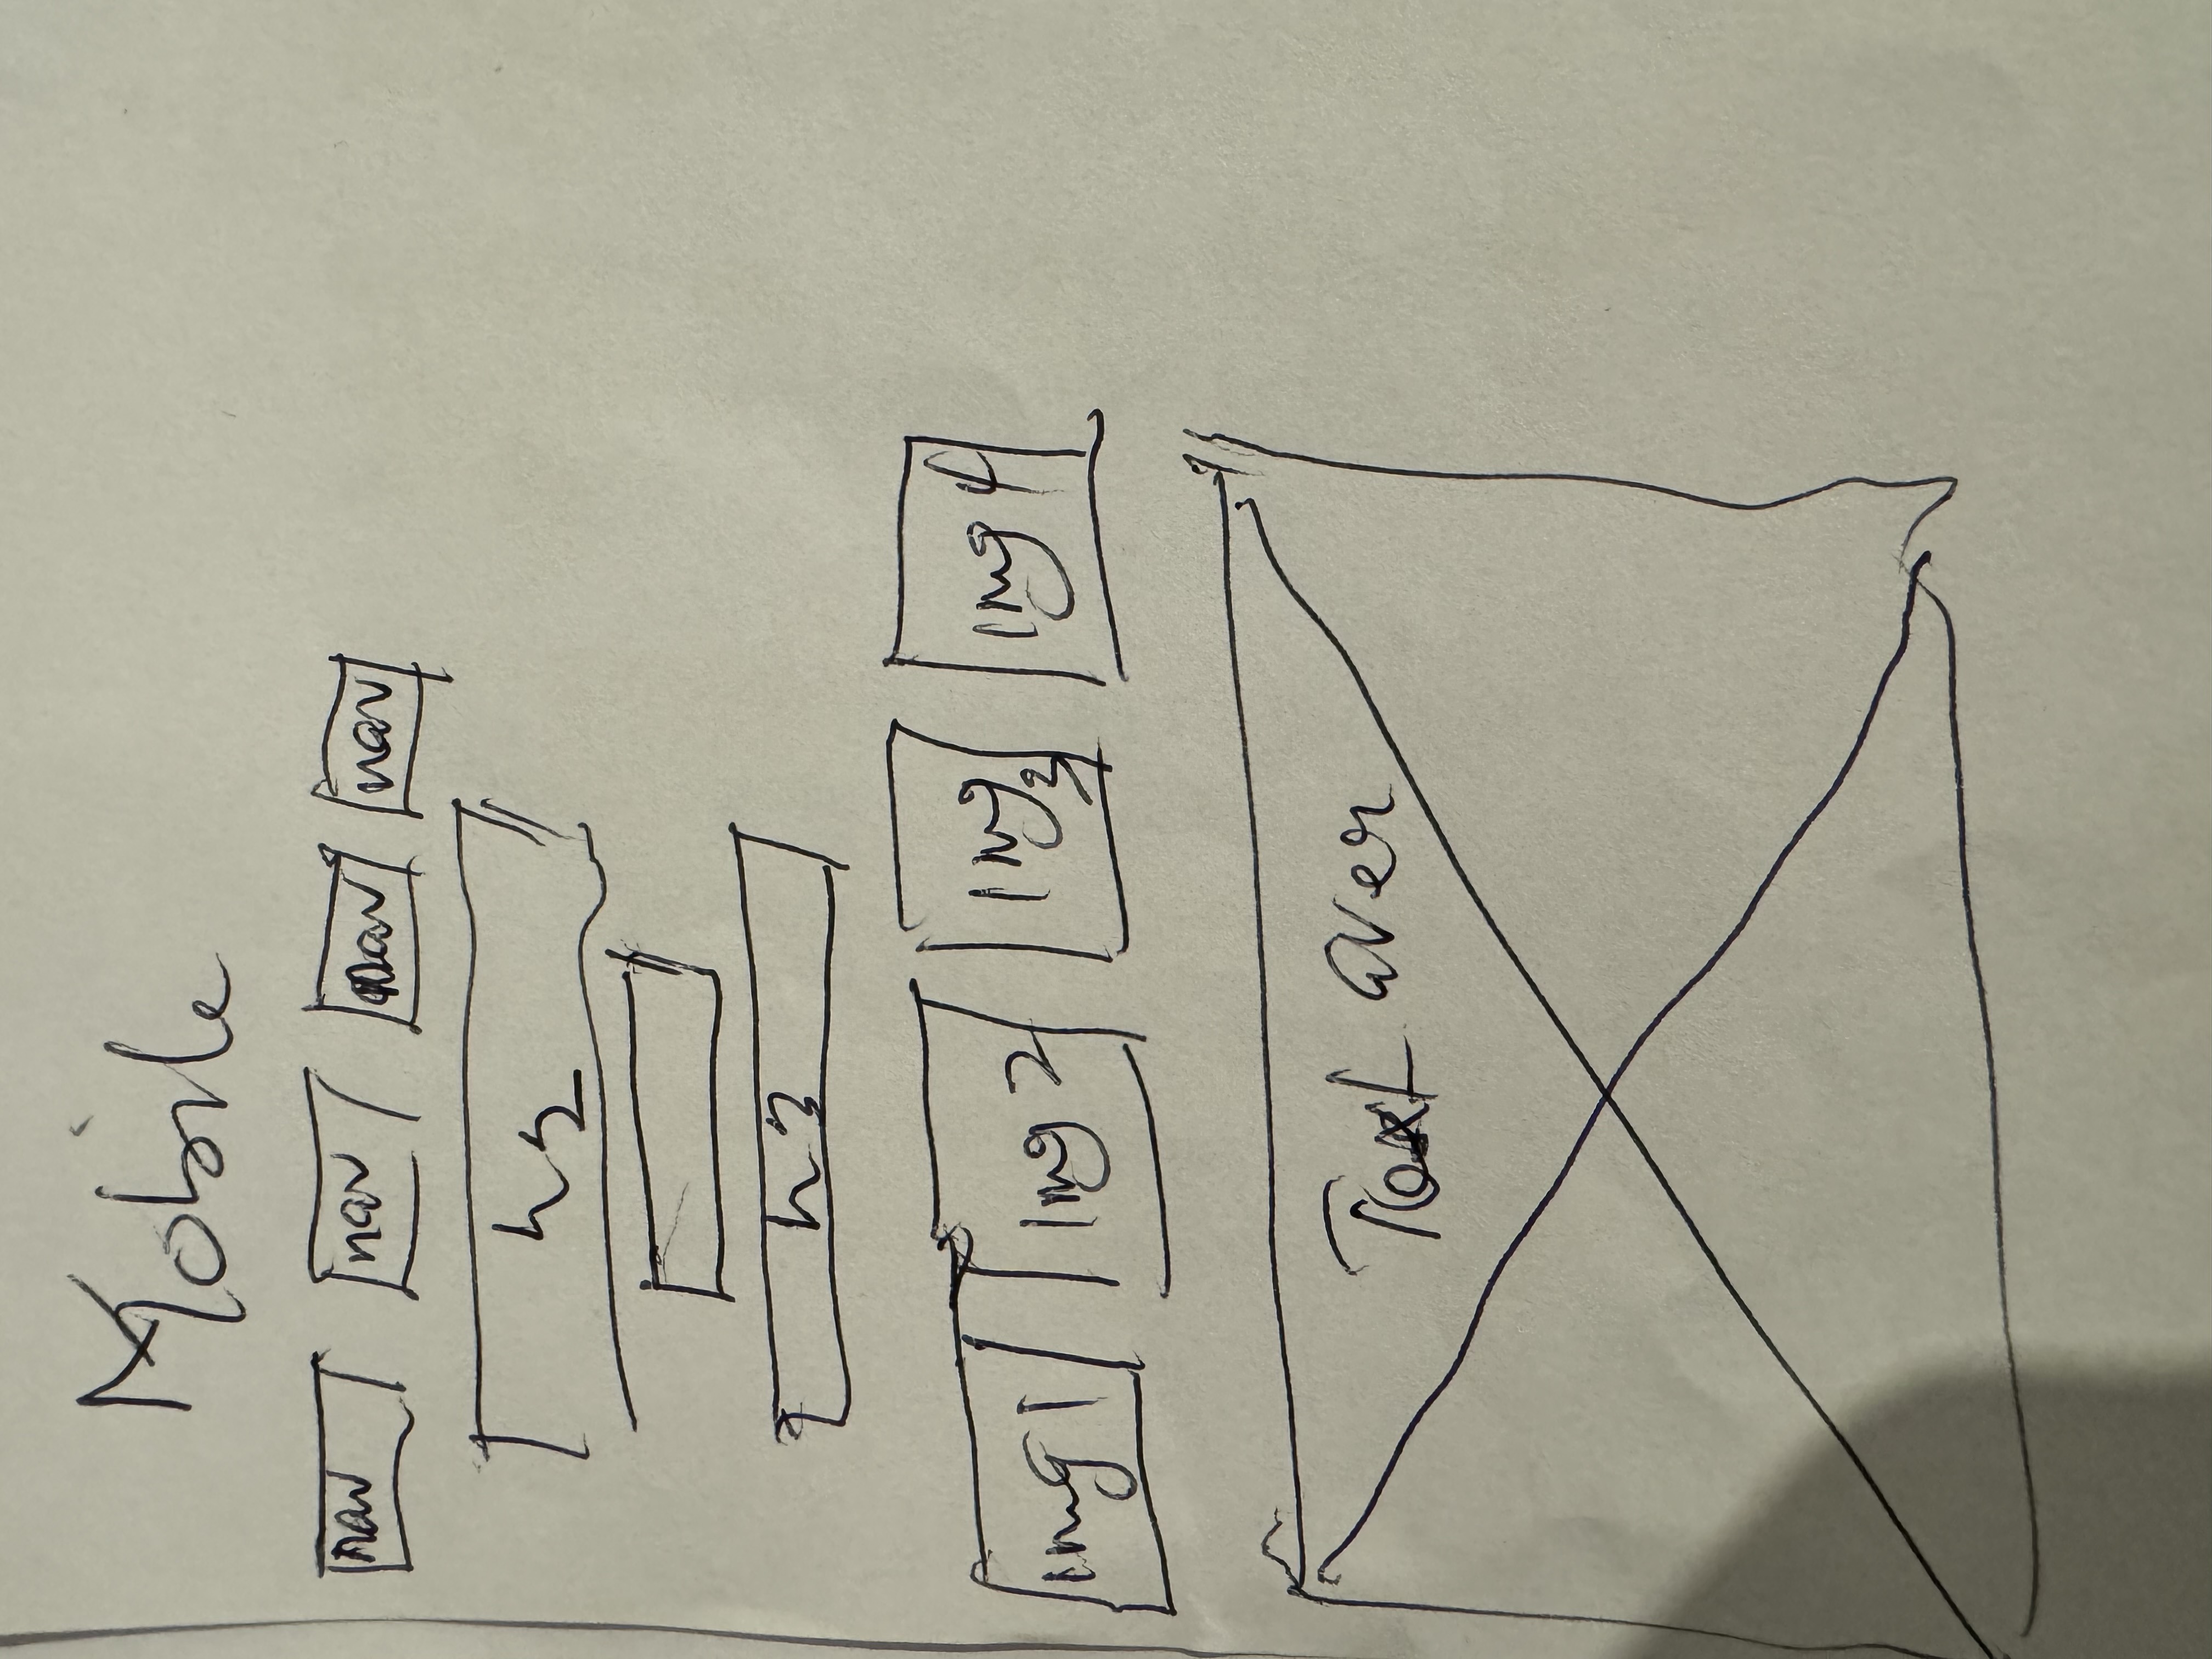 Mobile
nav nav nav nav
h2
h3
img1 img2 img3 img4
Text over